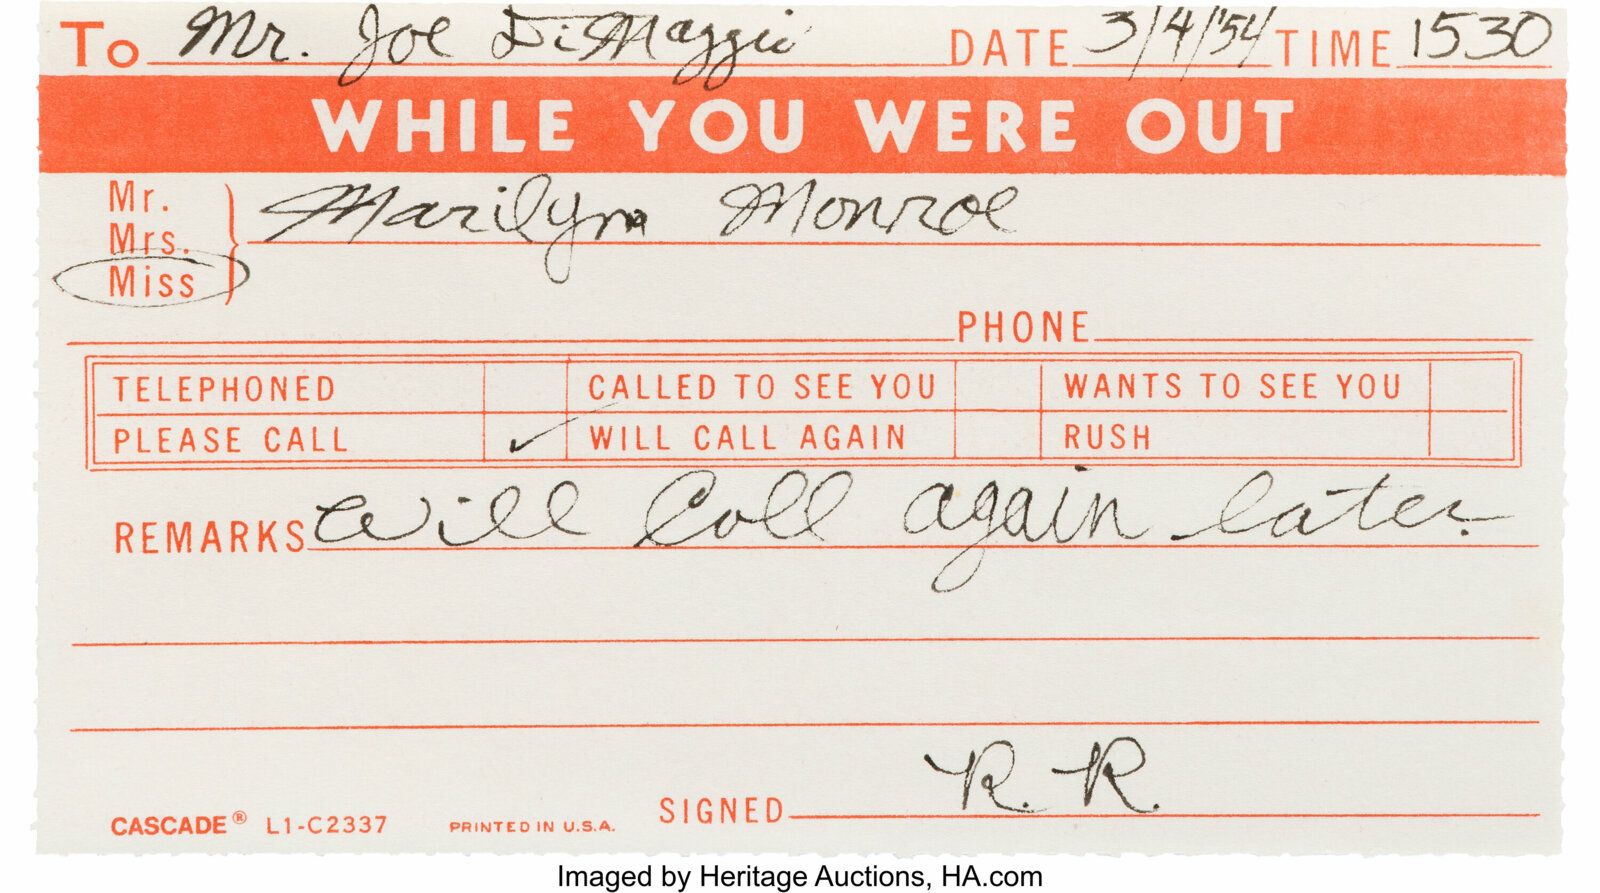 To Mr. Joe DiMaggio DATE 3/4/'54 TIME 1530
WHILE YOU WERE OUT
Mr.
Mrs.
Miss
Marilyn Monroe
PHONE
TELEPHONED CALLED TO SEE YOU WANTS TO SEE YOU
PLEASE CALL ✓ WILL CALL AGAIN RUSH
REMARKS Will Call again later.
SIGNED R. R.
CASCADE® L1-C2337 PRINTED IN U.S.A.
Imaged by Heritage Auctions, HA.com